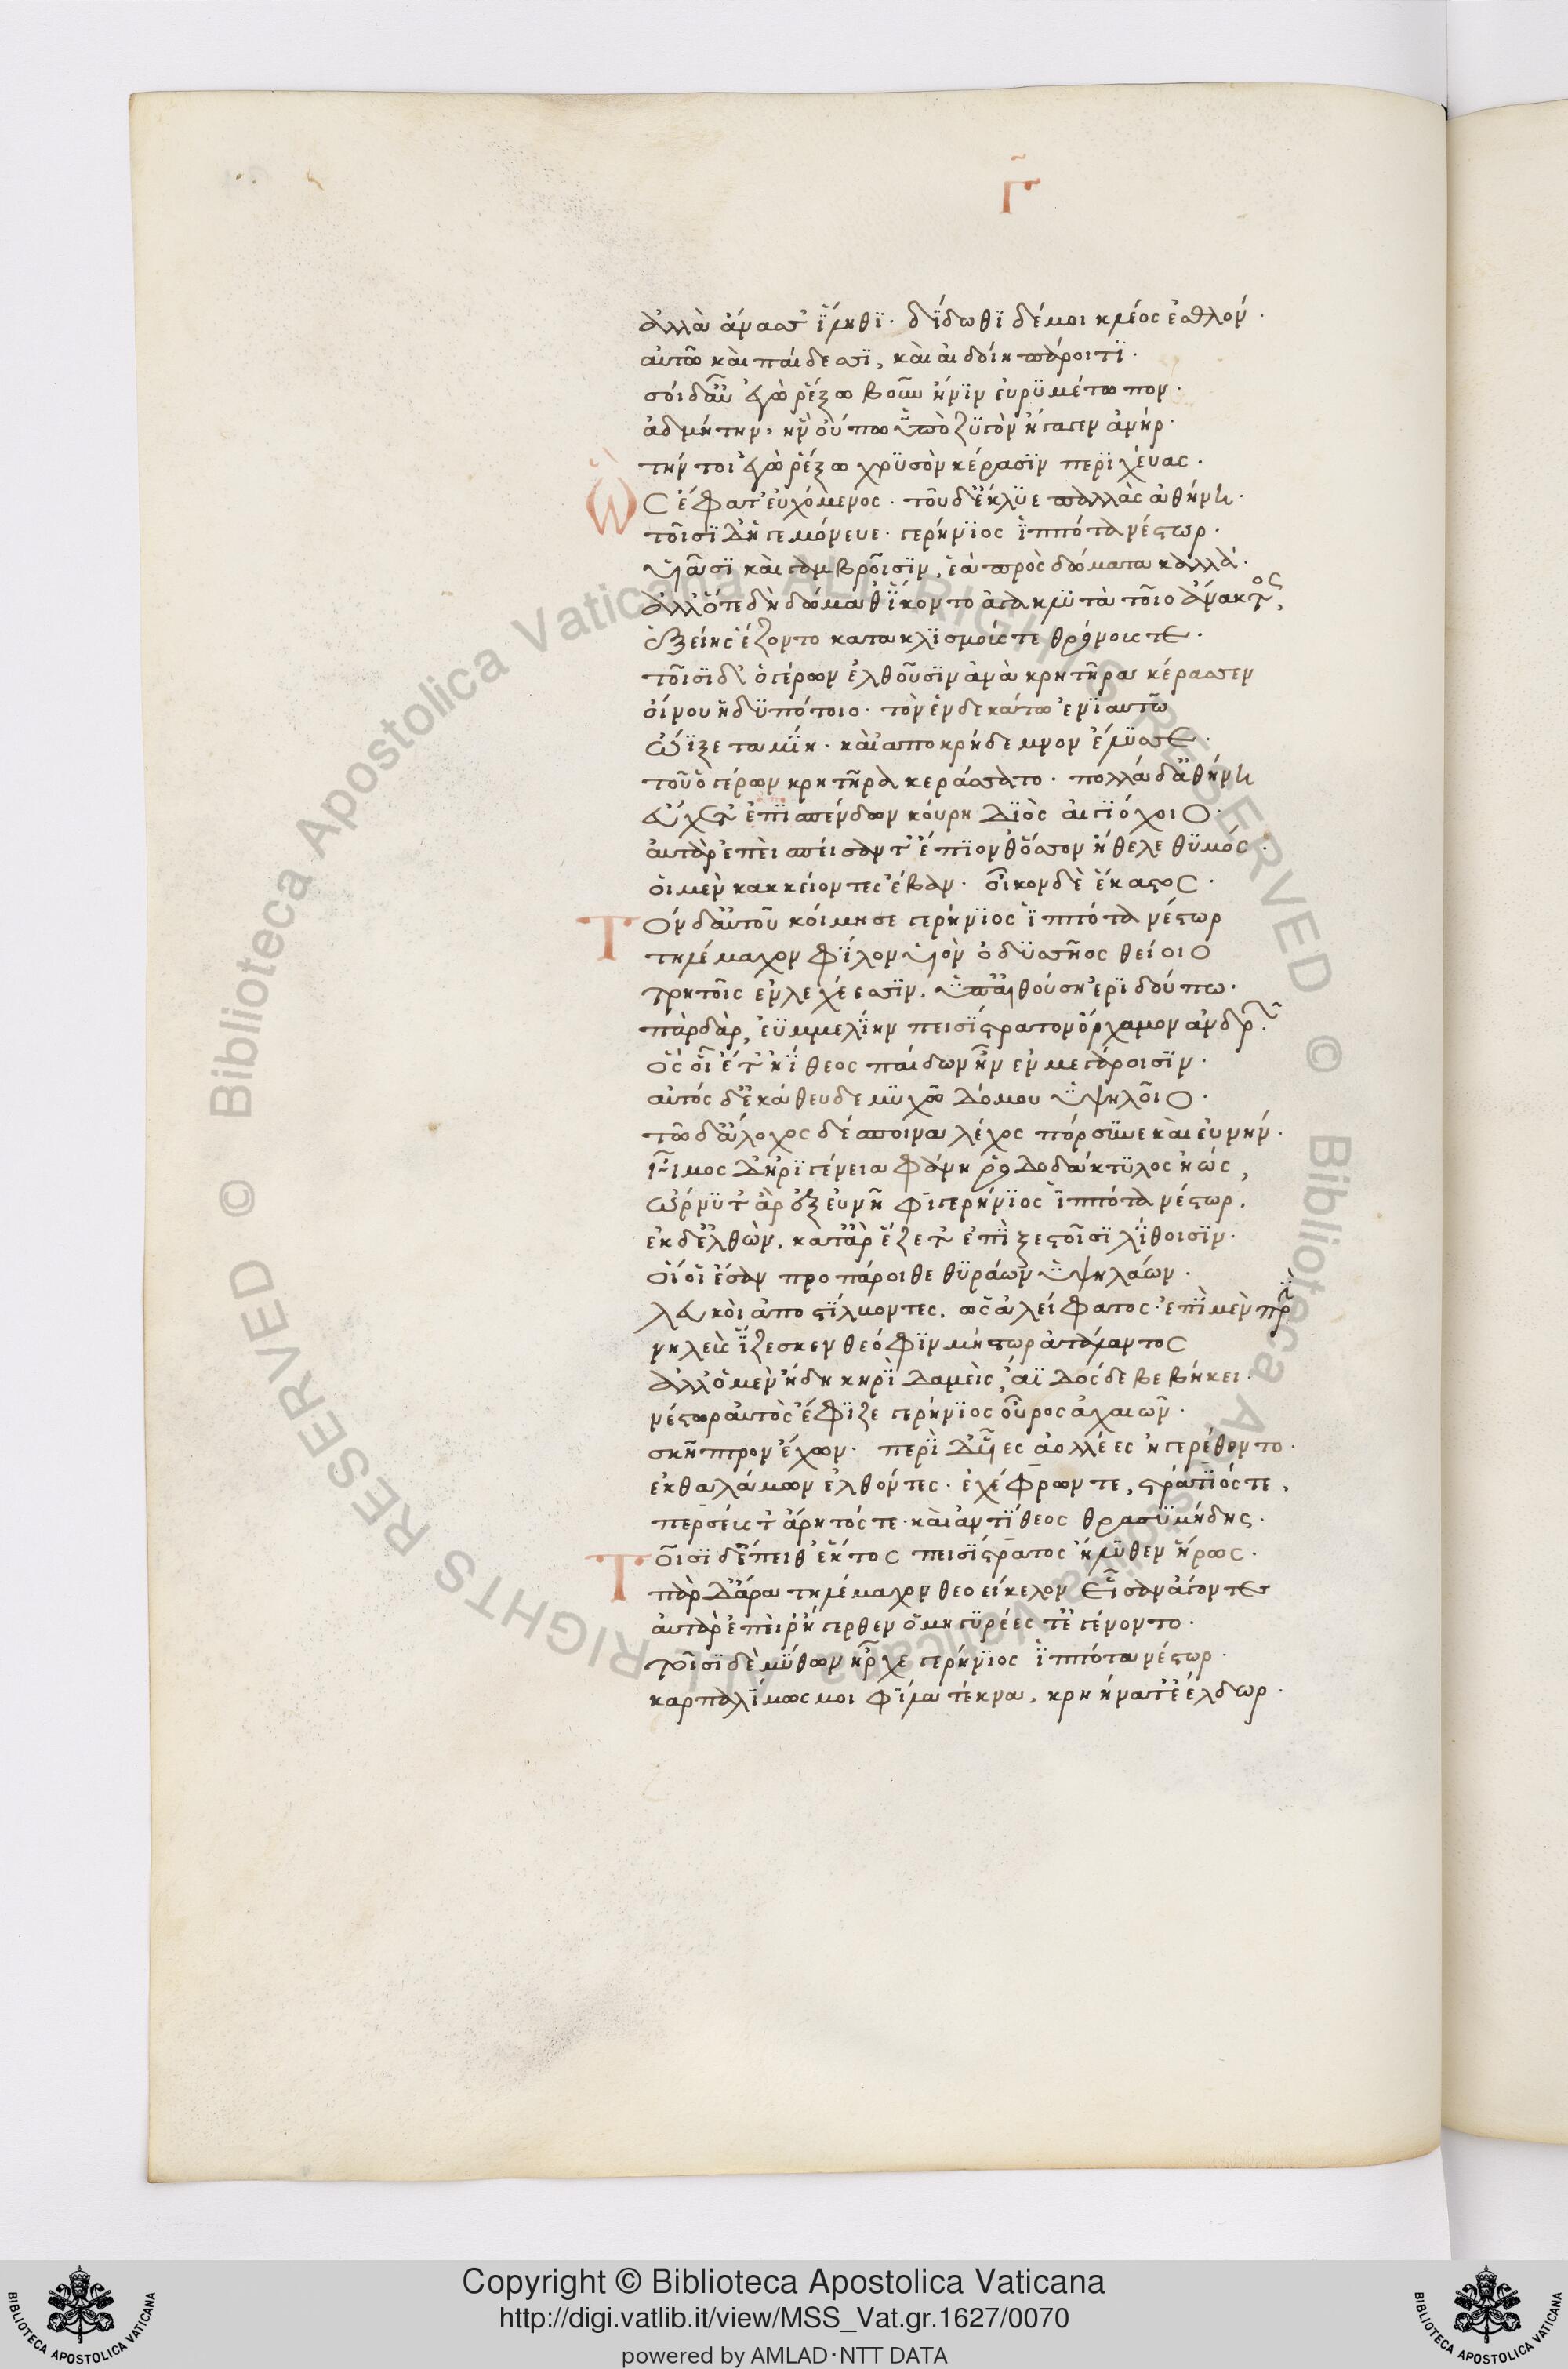 Γ
ἀλλὰ ἄνασσ' ἵληθι· δίδωθι δέ μοι κλέος ἐσθλόν·
αὐτῶ καὶ παίδεσσι, καὶ αἰδοίη παράκοιτι·
σοὶ δ' αὖ ἐγὼ ῥέξω βοῦν ἦνιν εὐρυμέτωπον·
ἀδμήτην, ἣν οὔπω ὑπὸ ζυγὸν ἤγαγεν ἀνήρ·
τήν τοι ἐγὼ ῥέξω χρυσὸν κέρασιν περιχεύας·
Ὣς ἔφατ' εὐχόμενος· τοῦ δ' ἔκλυε παλλὰς ἀθήνη·
τοῖσι δ' ἡγεμόνευε· γερήνιος ἱππότα νέστωρ·
υἱάσι καὶ γαμβροῖσιν, ἑὰ πρὸς δώματα καλλά·
ἀλλ' ὅτε δὴ δώμαθ' ἵκοντο ἀγακλυτὰ τοῖο ἄνακτος,
ἑξείης ἕζοντο κατὰ κλισμούς τε θρόνους τε·
τοῖσι δ' ὁ γέρων ἐλθοῦσιν ἀνὰ κρητῆρα κέρασσεν
οἴνου ἡδυπότοιο· τὸν ἑνδεκάτω ἐνιαυτῶ
ὤϊξε ταμίη· καὶ ἀπο κρήδεμνον ἔλυσσε·
τοῦ ὁ γέρων κρητῆρα κεράσσατο· πολλὰ δ' ἀθήνη
εὔχετ' ἐπισπένδων κούρη διὸς αἰγιόχοιο·
αὐτὰρ ἐπεὶ σπεῖσαν τ' ἔπιον θ' ὅσσον ἤθελε θυμός·
οἱ μὲν κακκείοντες ἔβαν· οἶκον δὲ ἕκαστος·
Τὸν δ' αὐτοῦ κοίμησε γερήνιος ἱππότα νέστωρ
τηλέμαχον φίλον υἱὸν ὀδυσσῆος θείοιο
τρητοῖς ἐν λεχέεσσιν, ὑπ' αἰθούση ἐριδούπω·
πὰρ δ' ἄρ, ἐϋμμελίην πεισίστρατον ὄρχαμον ἀνδρῶν·
ὅς οἱ ἔτ' ἠΐθεος παίδων ἦν ἐν μεγάροισιν·
αὐτός δ' ἐκάθευδε μυχῶ δόμου ὑψηλοῖο·
τῶ δ' ἄλοχος δέσποινα λέχος πόρσυνε καὶ εὐνήν·
ἦμος δ' ἠριγένεια φάνη ῥοδοδάκτυλος ἠώς,
ὤρνυτ' ἄρ ἐξ εὐνῆφι γερήνιος ἱππότα νέστωρ,
ἐκ δ' ἐλθὼν, κατ' ἄρ ἕζετ' ἐπὶ ξεστοῖσι λίθοισιν·
οἵ οἱ ἔσαν προπάροιθε θυράων ὑψηλάων·
λευκοὶ ἀποστίλβοντες, ὡς ἀλείφατος· ἐπὶ μὲν πρὶν
νηλεὺς ἵζεσκεν θεόφιν μήστωρ ἀτάλαντος
ἀλλ' ὁ μὲν ἤδη κηρὶ δαμεὶς, ἄϊδος δε βεβήκει·
νέστωρ αὐτὸς ἔφιζε γερήνιος οὖρος ἀχαιῶν·
σκῆπτρον ἔχων· περὶ δ' υἷες ἀολλέες ἠγερέθοντο·
ἐκ θαλάμων ἐλθόντες· ἐχέφρων τε, στρατιός τε,
περσεύς τ' ἄρητός τε· καὶ ἀντίθεος θρασυμήδης·
Τοῖσι δ' ἔπειθ' ἕκτος πεισίστρατος ἤλυθεν ἥρως·
πὰρ δ' ἄρα τηλέμαχον θεοείκελον εἷσαν ἄγοντες
αὐτὰρ ἐπεὶ ῥ' ἤγερθεν ὁμηγυρέες τ' ἐγένοντο·
τοῖσι δὲ μύθων ἦρχε γερήνιος ἱππότα νέστωρ·
καρπαλίμως μοι φίλα τέκνα, κρηήνατ' ἐέλδωρ·
Copyright © Biblioteca Apostolica Vaticana
http://digi.vatlib.it/view/MSS_Vat.gr.1627/0070
powered by AMLAD·NTT DATA
BIBLIOTECA APOSTOLICA VATICANA
BIBLIOTECA APOSTOLICA VATICANA
© Biblioteca Apostolica Vaticana ALL RIGHTS RESERVED © Biblioteca Apostolica Vaticana ALL RIGHTS RESERVED